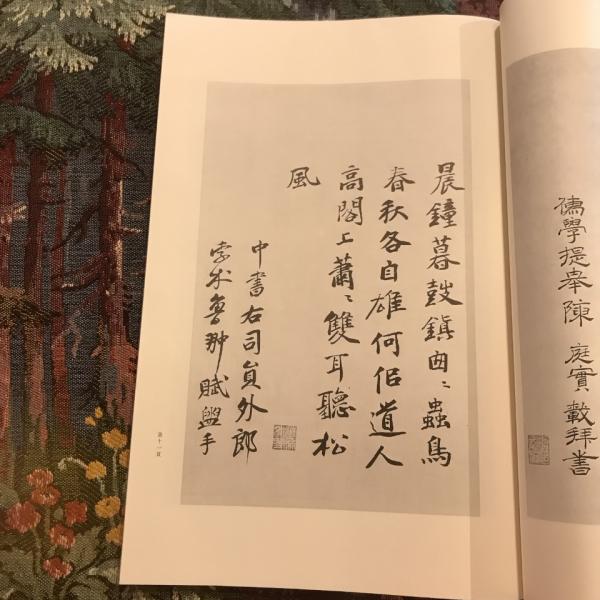 儒學提舉陳庭實載拜書
晨鐘暮鼓鎮匈〻蟲鳥
春秋各自雄何佀道人
高閣上蕭〻雙耳聽松
風
中書右司員外郎
孛朮魯翀賦盥手
第十一頁